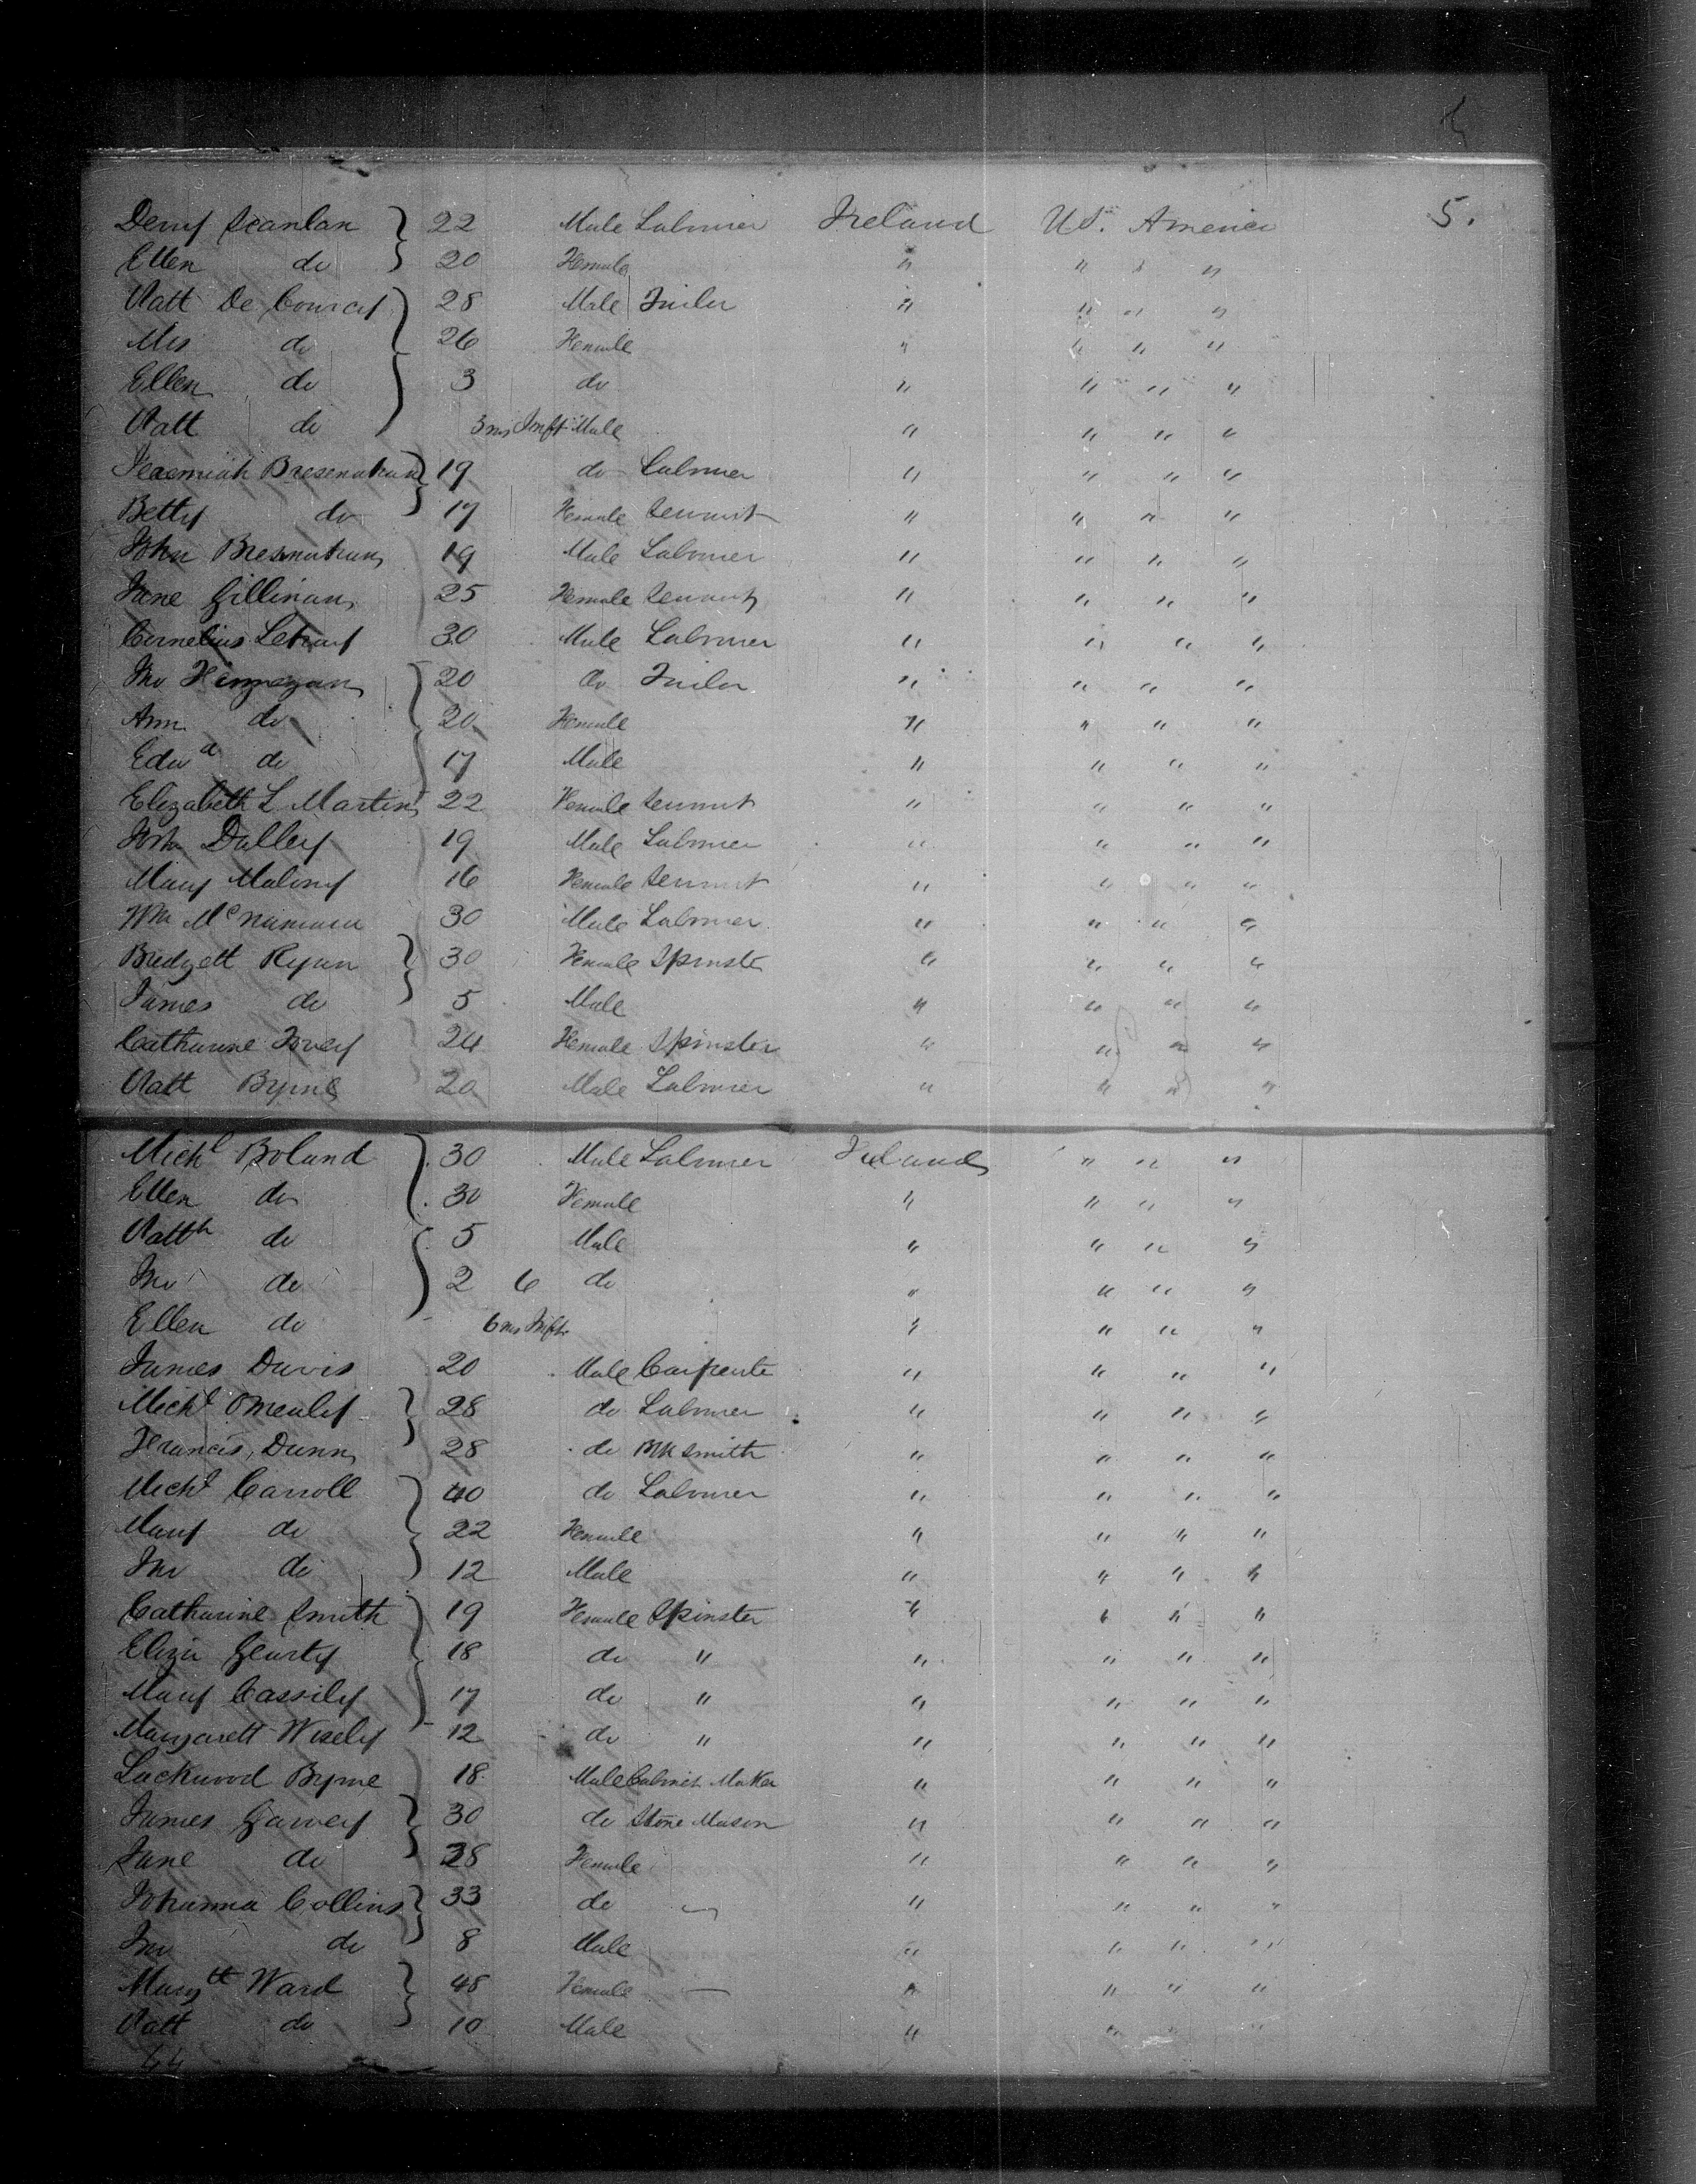 5.
Deny Scanlan 22 Male Labourer Ireland US. America
Ellen do 20 Female " " " "
Patt De Courcy 28 Male Tailor " " " "
Mrs do 26 Female " " " "
Ellen do 3 do " " " "
Patt do 3 ms Inft Male " " " "
Jeremiah Bresenahan 19 do Labourer " " " "
Betty do 17 Female Servant " " " "
John Bresnahan 19 Male Labourer " " " "
Jane Gillinan 25 Female Servant " " " "
Cornelius Lehany 30 Male Labourer " " " "
Jno Finnegan 20 do Tailor " " " "
Ann do 20 Female " " " "
Edwd do 17 Male " " " "
Elizabeth L Martin 22 Female Servant " " " "
John Dalley 19 Male Labourer " " " "
Mary Malony 16 Female Servant " " " "
Wm McNamara 30 Male Labourer " " " "
Bridgett Ryan 30 Female Spinster " " " "
James do 5 Male " " " "
Catharine 24 Female Spinster " " " "
Patt Byrne 20 Male Labourer " " " "
Michl Boland 30 Male Labourer Ireland " " "
Ellen do 30 Female " " " "
Patth do 5 Male " " " "
Jno do 2 6 do " " " "
Ellen do 6 ms Inft " " " "
James Davis 20 Male Carpenter " " " "
Michl Omealy 28 do Labourer " " " "
Francis Dunn 28 do Blk Smith " " " "
Michl Carroll 40 do Labourer " " " "
Mary do 22 Female " " " "
Jno do 12 Male " " " "
Catharine Smith 19 Female Spinster " " " "
Eliza Gearty 18 do " " " " "
Mary Cassily 17 do " " " " "
Margarett Wisely 12 do " " " " "
Lackwood Byrne 18 Male Cabinet Maker " " " "
James Garvey 30 do Stone Mason " " " "
Jane do 28 Female " " " "
Johanna Collins 33 do " " " "
Jno do 8 Male " " " "
Margtt Ward 48 Female — " " " "
Patt do 10 Male " " " "
44